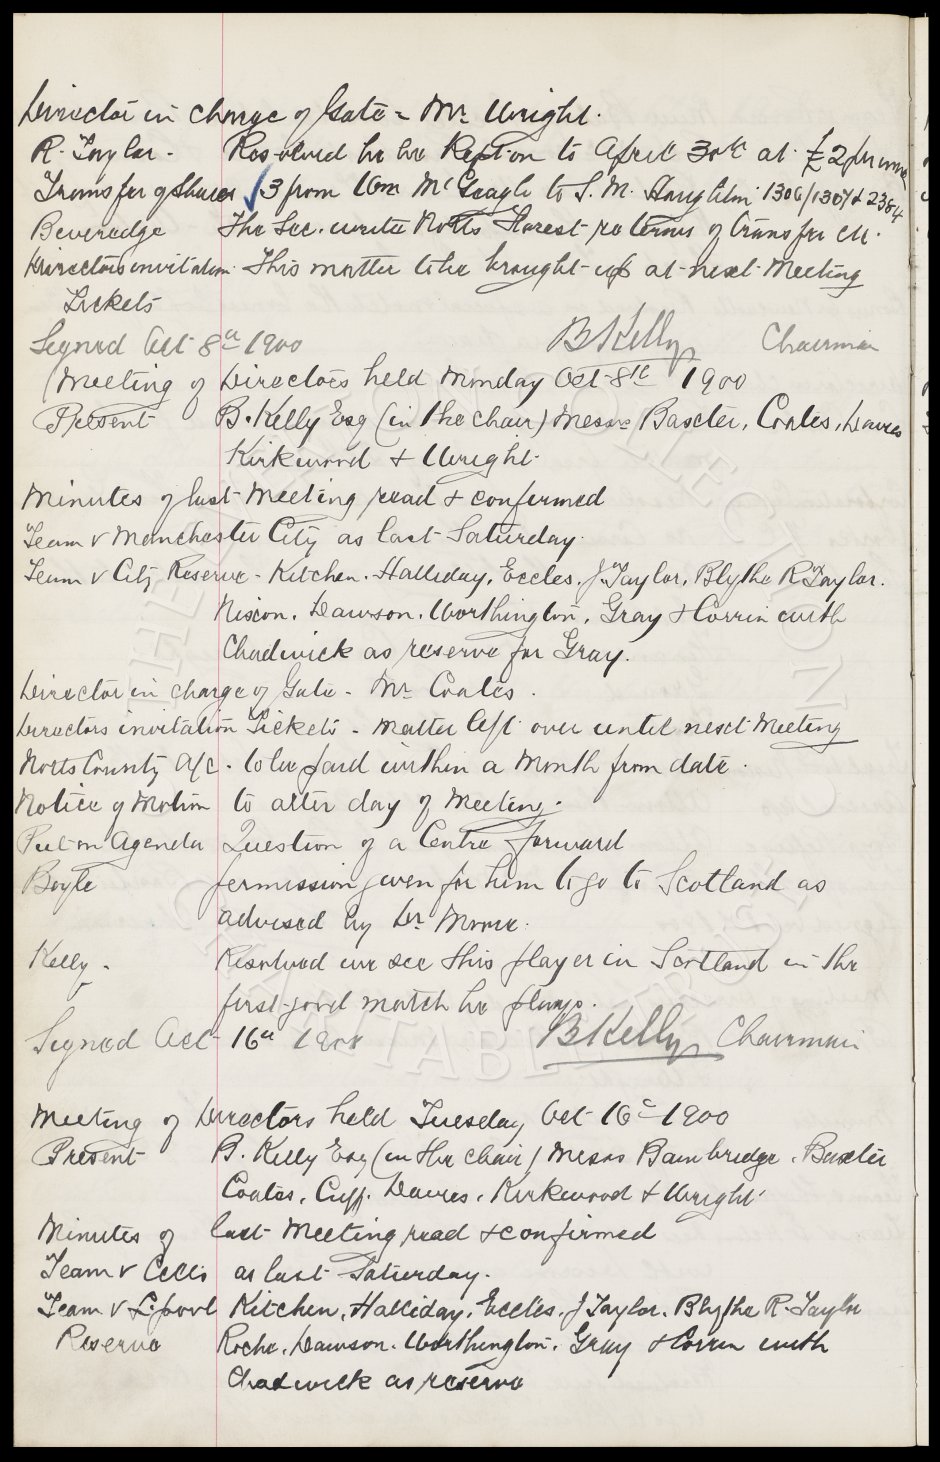 Director in charge of Gate - Mr. Wright.
R. Taylor. Resolved he be Kept on to April 30th at £2 per week
Transfer of Shares √ 3 from Wm McGough to S. M. Haughton 1306/1307 & 2384
Beveredge The Sec. write Notts Forest re terms of transfer &c.
Directors invitation This matter to be brought up at next Meeting
Tickets
Signed Oct 8th 1900 B Kelly Chairman
Meeting of Directors held Monday Oct 8th 1900
Present B. Kelly Esq (in the chair) Messrs Baxter, Coates, Davies
Kirkwood & Wright
Minutes of last Meeting read & confirmed
Team v Manchester City as last Saturday.
Team v City Reserve - Kitchen. Halliday, Eccles. J Taylor, Blythe R Taylor.
Nixon. Dawson. Worthington, Gray & Corrin with
Chadwick as reserve for Gray.
Director in charge of Gate - Mr Coates.
Directors invitation Tickets - matter left over until next Meeting
Notts County A/c. to be paid within a Month from date.
Notice of Motion to alter day of Meeting.
Put on Agenda Question of a Centre forward
Boyle permission given for him to go to Scotland as
advised by Dr Moore.
Kelly. Resolved we see this player in Scotland in the
first good match he plays.
Signed Oct 16th 1900 B Kelly Chairman
Meeting of Directors held Tuesday Oct 16th 1900
Present B. Kelly Esq (in the chair) Messrs Bainbridge, Baxter
Coates, Cuff. Davies, Kirkwood & Wright
Minutes of last Meeting read & confirmed
Team v Celtic as last Saturday.
Team v L'pool Kitchen, Halliday, Eccles, J Taylor. Blythe R. Taylor
Reserve Roche, Dawson. Worthington. Gray & Corrin with
Chadwick as reserve
THE EVERTON COLLECTION
CHARITABLE TRUST